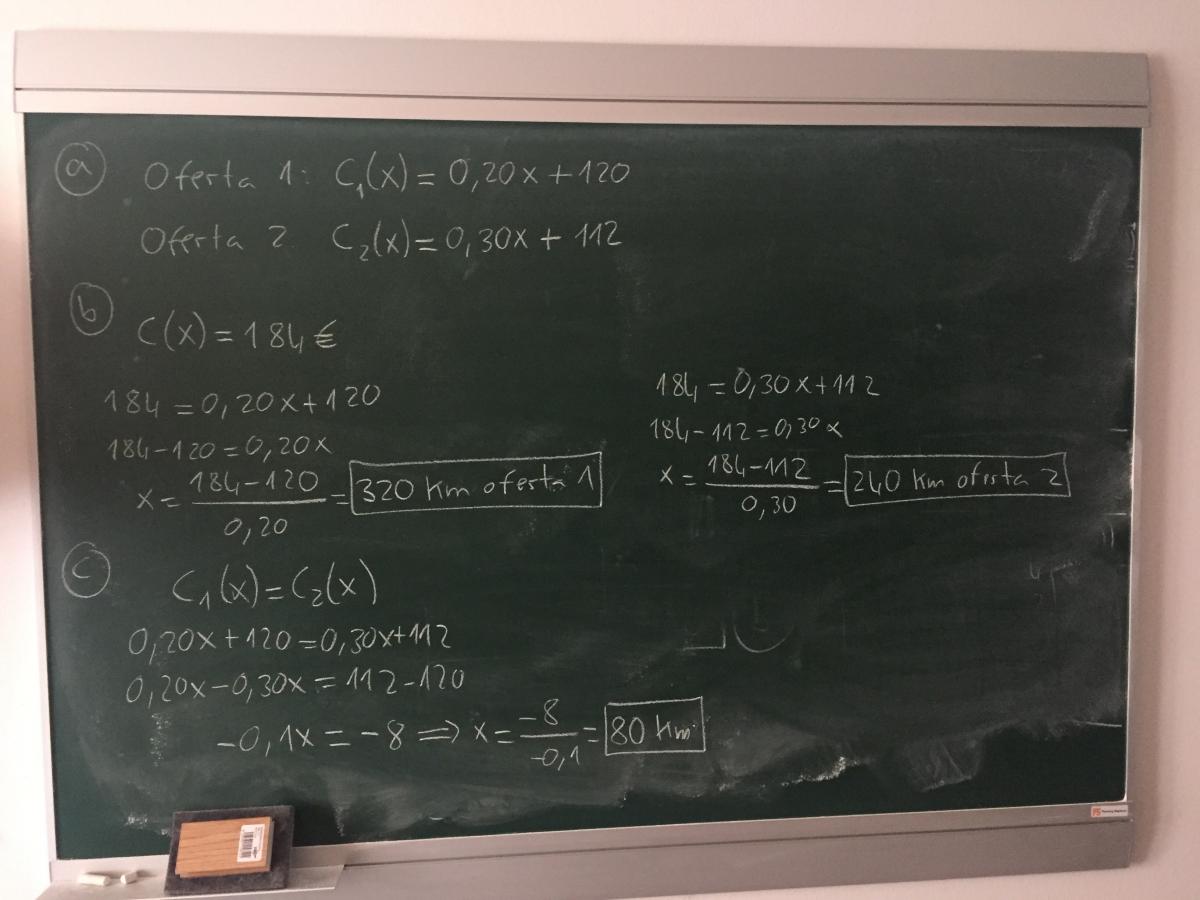 a Oferta 1: C₁(x) = 0,20x + 120
Oferta 2 C₂(x) = 0,30x + 112
b
C(x) = 184 €
184 = 0,20x + 120
184 - 120 = 0,20x
x = (184 - 120)/0,20 = 320 Km oferta 1
184 = 0,30x + 112
184 - 112 = 0,30x
x = (184 - 112)/0,30 = 240 Km oferta 2
c
C₁(x) = C₂(x)
0,20x + 120 = 0,30x + 112
0,20x - 0,30x = 112 - 120
-0,1x = -8 ⟹ x = -8/-0,1 = 80 Km